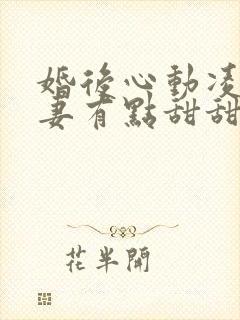 婚後心動凌
妻有點甜甜
花半開